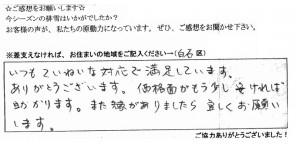 ☆ご感想をお願いします☆
今シーズンの排雪はいかがでしたか？
お客様の声が、私たちの原動力になっています。ぜひ、ご感想をお聞かせ下さい。
※差支えなければ、お住まいの地域をご記入ください→(白石区)
いつもていねいな対応で満足しています。
ありがとうございます。価格面がもう少し安ければ
助かります。また機会がありましたら宜しくお願い
します。
ご協力ありがとうございました！